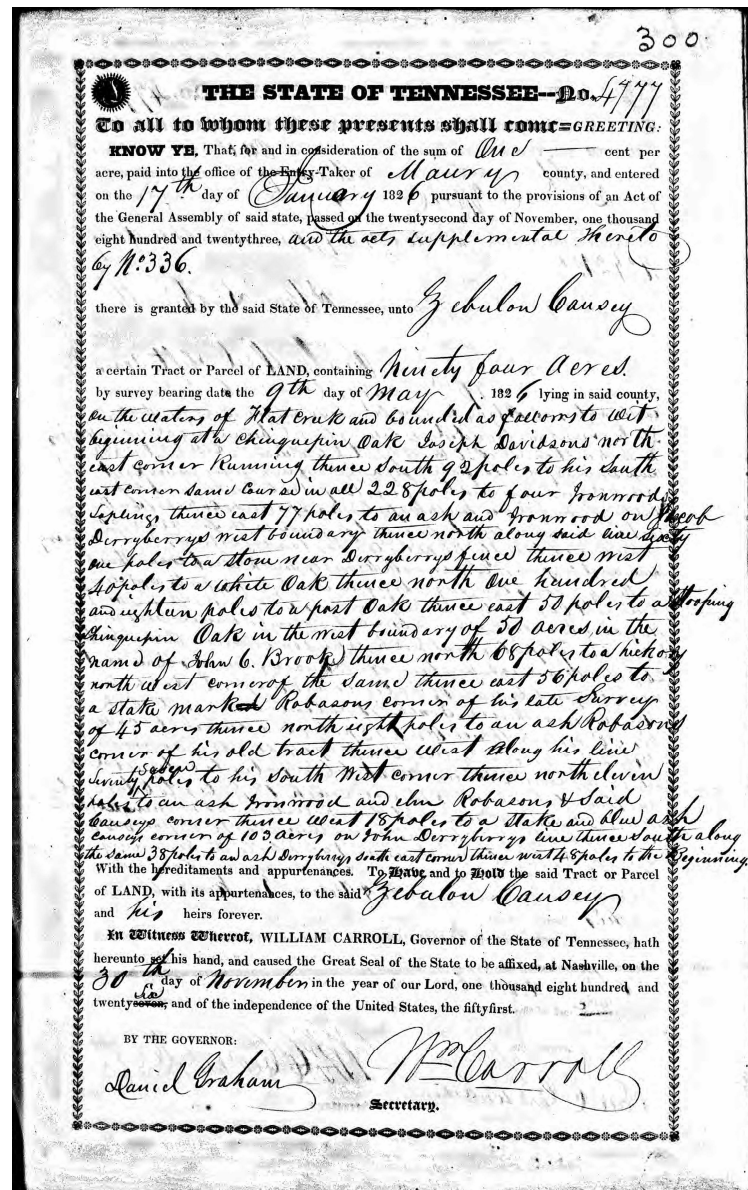 300
THE STATE OF TENNESSEE--No. 4977
To all to whom these presents shall come=GREETING:
KNOW YE, That, for and in consideration of the sum of One — cent per
acre, paid into the office of the Entry-Taker of Maury county, and entered
on the 17th day of January 1826 pursuant to the provisions of an Act of
the General Assembly of said state, passed on the twentysecond day of November, one thousand
eight hundred and twentythree, and the acts supplemental thereto
by No. 336.
there is granted by the said State of Tennessee, unto Zebulon Causey
a certain Tract or Parcel of LAND, containing Ninety four Acres.
by survey bearing date the 9th day of May 1826 lying in said county,
on the waters of Flat Creek and bounded as follows to wit
beginning at a Chinquepin Oak Joseph Davidsons north
east corner Running thence South 92 poles to his South
east corner same course in all 228 poles to four Ironwood
Saplings thence east 77 poles to an ash and Ironwood on Jacob
Derryberrys west boundary thence north along said line sixty
one poles to a stone near Derryberrys fence thence west
40 poles to a White Oak thence north One hundred
and eighteen poles to a post Oak thence east 50 poles to a stooping
Chinquepin Oak in the west boundary of 50 acres, in the
name of John C. Brook) thence north 68 poles to a hickory
north west corner of the same thence east 56 poles to
a stake marked Robasons corner of his late Survey
of 45 acres thence north eight poles to an ash Robasons
corner of his old tract thence West along his line
Seventy Seven poles to his South West corner thence north eleven
poles to an ash Ironwood and elm Robasons & Said
Causeys corner thence West 18 poles to a stake and blue ash
Causeys corner of 103 acres on John Derryberrys line thence South along
the same 38 poles to an ash Derryberrys south east corner thence west 48 poles to the Beginning.
With the hereditaments and appurtenances. To Have and to Hold the said Tract or Parcel
of LAND, with its appurtenances, to the said Zebulon Causey
and his heirs forever.
In Witness Whereof, WILLIAM CARROLL, Governor of the State of Tennessee, hath
hereunto set his hand, and caused the Great Seal of the State to be affixed, at Nashville, on the
30th day of November in the year of our Lord, one thousand eight hundred and
twentyseven, Six and of the independence of the United States, the fiftyfirst.
BY THE GOVERNOR:
Wm Carroll
Daniel Graham
Secretary.